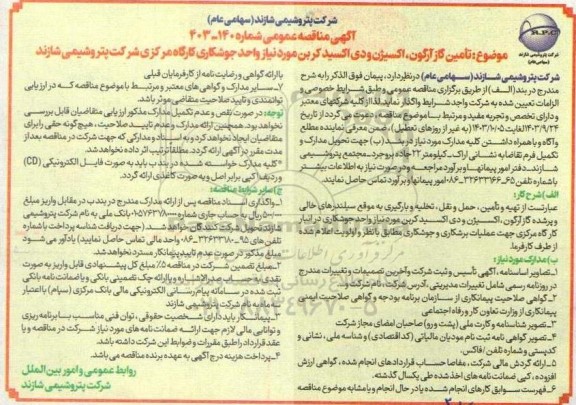 شرکت پتروشیمی شازند (سهامی عام)
آگهی مناقصه عمومی شماره ۱۴۰-۴۰۳
موضوع: تامین گاز آرگون، اکسیژن و دی اکسید کربن مورد نیاز واحد جوشکاری کارگاه مرکزی شرکت پتروشیمی شازند
شرکت پتروشیمی شازند
(سهامی عام)
شرکت پتروشیمی شازند (سهامی عام) در نظر دارد، پیمان فوق الذکر را به شرح
مندرج در بند (الف) از طریق برگزاری مناقصه عمومی و طبق شرایط خصوصی و
الزامات تعیین شده به شرکت واجد شرایط واگذار نماید لذا از کلیه شرکتهای معتبر
و دارای تخصص و تجربه مفید و مرتبط با موضوع مناقصه دعوت می گردد از تاریخ
۱۴۰۳/۹/۲۴ لغایت ۱۴۰۳/۱۰/۵ (به غیر از روزهای تعطیل) ضمن معرفی نماینده مطلع
و آگاه و با همراه داشتن کلیه مدارک مورد نیاز در بند (ب) جهت تحویل مدارک و
تکمیل فرم تقاضا به نشانی اراک_کیلومتر ۲۲ جاده بروجرد_مجتمع پتروشیمی
شازند_دفتر امور پیمانها و برآورد مراجعه و در صورت نیاز به اطلاعات بیشتر
با شماره تلفن ۶۵-۳۲۶۳۳۲۶۶-۰۸۶ امور پیمانها و برآورد تماس حاصل نمایند.
الف) شرح کار:
عبارتست از تهیه و تأمین، حمل و نقل، تخلیه و بارگیری به موقع سیلندرهای خالی
و پر شده گاز آرگون، اکسیژن و دی اکسید کربن مورد نیاز واحد جوشکاری در انبار
کارگاه مرکزی جهت عملیات برشکاری و جوشکاری مطابق با نظر و اولویت اعلام شده
از طرف کارفرما.
ب) مدارک مورد نیاز:
۱-تصاویر اساسنامه، آگهی تأسیس و ثبت شرکت و آخرین تصمیمات و تغییرات مندرج
در روزنامه رسمی شامل تغییرات مدیریتی، آدرس شرکت، نام شرکت و ...
۲-گواهی صلاحیت پیمانکاری از سازمان برنامه بودجه و گواهی صلاحیت ایمنی
پیمانکاری از وزارت تعاون کار و رفاه اجتماعی
۳-تصویر شناسنامه و کارت ملی (پشت و رو) صاحبان امضای مجاز شرکت
۴-تصویر گواهی نامه ثبت نام مودیان مالیاتی (کد اقتصادی) و شناسه ملی، نشانی و
کدپستی و شماره تلفن / فاکس.
۵-ارائه گردش مالی شرکت، مفاصا حساب قراردادهای انجام شده، گواهی ارزش
افزوده، کپی ضمانت نامه های اخذ شده طی یکسال گذشته.
۶-فهرست سوابق کارهای انجام شده یا در حال انجام و یا مشابه موضوع مناقصه
با ارائه گواهی و رضایت نامه از کارفرمایان قبلی
۷-سایر مدارک و گواهی های معتبر و مرتبط با موضوع مناقصه که در ارزیابی
توانمندی و تایید صلاحیت متقاضی موثر باشد.
توجه: در صورت نقص و عدم تکمیل مدارک مذکور ارزیابی متقاضیان قابل بررسی
نخواهد بود. همچنین ارائه مدارک و عدم تایید صلاحیت، هیچ گونه حقی را برای
متقاضیان ایجاد نخواهد کرد و به اسناد و مدارکی که جهت شرکت در مناقصه بعد از
مدت مقرر به آگهی ارائه گردد. مطلقاً ترتیب اثر داده نخواهد شد.
*کلیه مدارک خواسته شده در بند ب باید به صورت فایل الکترونیکی (CD)
و ردیف ۶ کپی برابر اصل و به صورت کاغذی ارائه گردد.
ج) سایر شرایط مناقصه:
۱-واگذاری اسناد مناقصه پس از ارائه مدارک مندرج در بند ب در مقابل واریز مبلغ
ریال به حساب جاری شماره بانک ملی به نام شرکت پتروشیمی
شازند تحویل شرکت کنندگان خواهد شد. (جهت دریافت شناسه پرداخت با شماره
تلفن های واحد مالی تماس حاصل نمایید) یادآور می شود
مبلغ مذکور در صورت عدم تایید پیمانکار مسترد نخواهد شد.
۲-مبلغ تضمین شرکت در مناقصه ۵٪ مبلغ کل پیشنهادی قابل واریز به صورت
نقدی به حساب صدرالاشاره و یا ارائه چک تضمینی بانکی و یا ضمانت نامه بانکی
ثبت شده در سامانه پیام رسانی الکترونیکی مالی بانک مرکزی (سپام) با اعتبار
۳ ماهه به نام شرکت پتروشیمی شازند
۳-پیمانکار باید دارای شخصیت حقوقی، توان فنی مناسب با برنامه ریزی
و توانایی مالی لازم جهت ارائه ضمانت نامه های مورد نیاز شرکت در مناقصه و یا
عقد قرارداد را طبق مقررات و ضوابط این شرکت داشته باشد.
۴-پرداخت هزینه درج آگهی به عهده برنده مناقصه می باشد.
روابط عمومی و امور بین الملل
شرکت پتروشیمی شازند